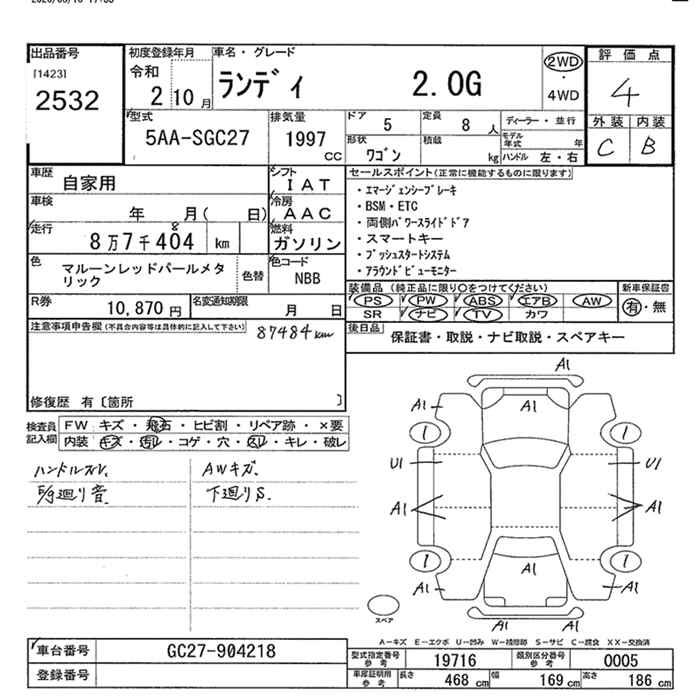 出品番号
[1423]
2532
初度登録年月
令和
2 10 月
車名・グレード
ランディ 2.0G
2WD
・
4WD
評価点
4
外装 内装
C B
型式
5AA-SGC27
排気量
1997
CC
ドア
5
定員
8 人
ディーラー・並行
形状
ワゴン
積載
kg
モデル年式 年
ハンドル 左・右
車歴
自家用
シフト
IAT
車検
年 月( 日)
冷房
AAC
走行
8万7千404 km
8
燃料
ガソリン
色
マルーンレッドパールメタリック
色替
色コード
NBB
セールスポイント(正常に機能するものに限ります)
・エマージェンシーブレーキ
・BSM・ETC
・両側パワースライドドア
・スマートキー
・プッシュスタートシステム
・アラウンドビューモニター
R券
10,870 円
名変通知期限
月 日
装備品 (純正品に限り○をつけてください)
PS PW ABS エアB AW
SR ナビ TV カワ
新車保証書
有・無
注意事項申告欄(不具合内容等は具体的に記入して下さい)
87484km
後日品
保証書・取説・ナビ取説・スペアキー
修復歴 有〔箇所 〕
検査員記入欄
FW キズ・飛石・ヒビ割・リペア跡・×要
内装 キズ・汚れ・コゲ・穴・スレ・キレ・破レ
ハンドルスレ、
AWキズ、
下廻りS.
A1
A1 A1 A1
1 1
U1 U1
A1 A1
1 1
A1 A1 A1
A1 A1
スペア
A-キズ E-エクボ U-凹み W-補修跡 S-サビ C-腐食 XX-交換済
車台番号
GC27-904218
登録番号
型式指定番号
参考
19716
類別区分番号
参考
0005
車庫証明用
参考
長さ 468 cm 幅 169 cm 高さ 186 cm